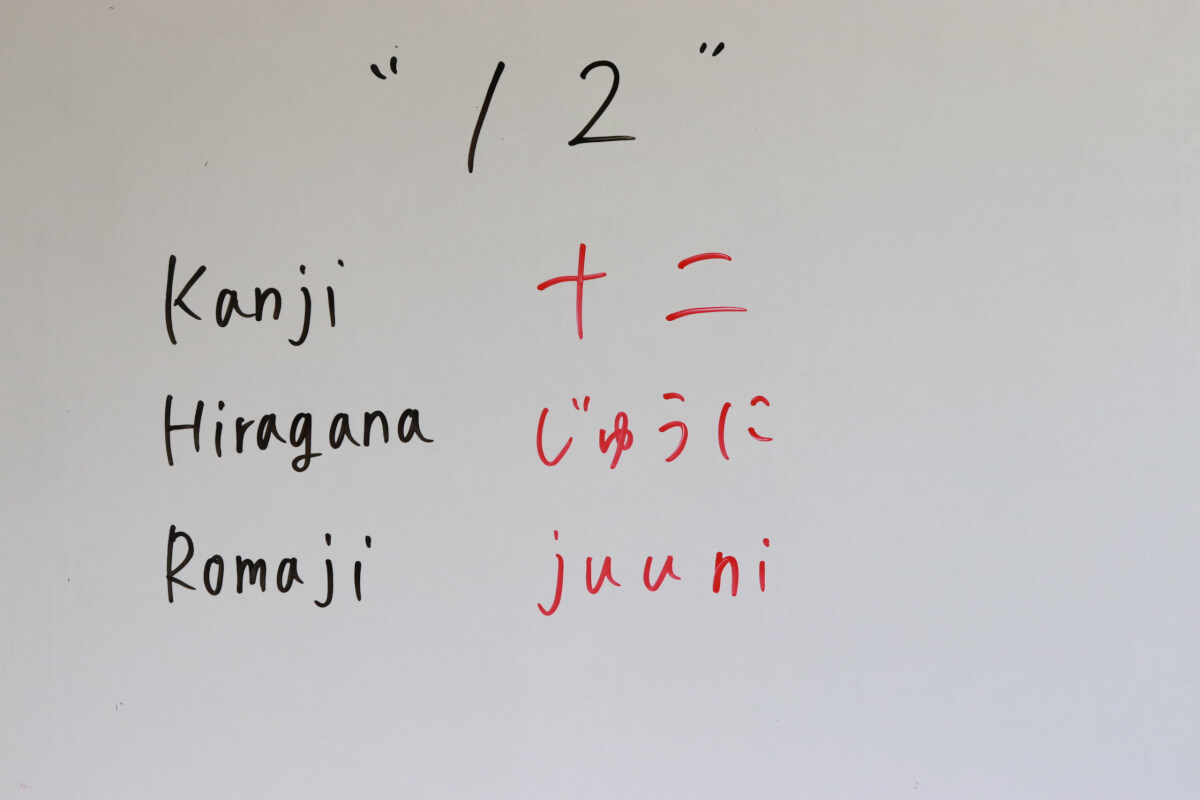 "12"
Kanji 十二
Hiragana じゅうに
Romaji juuni